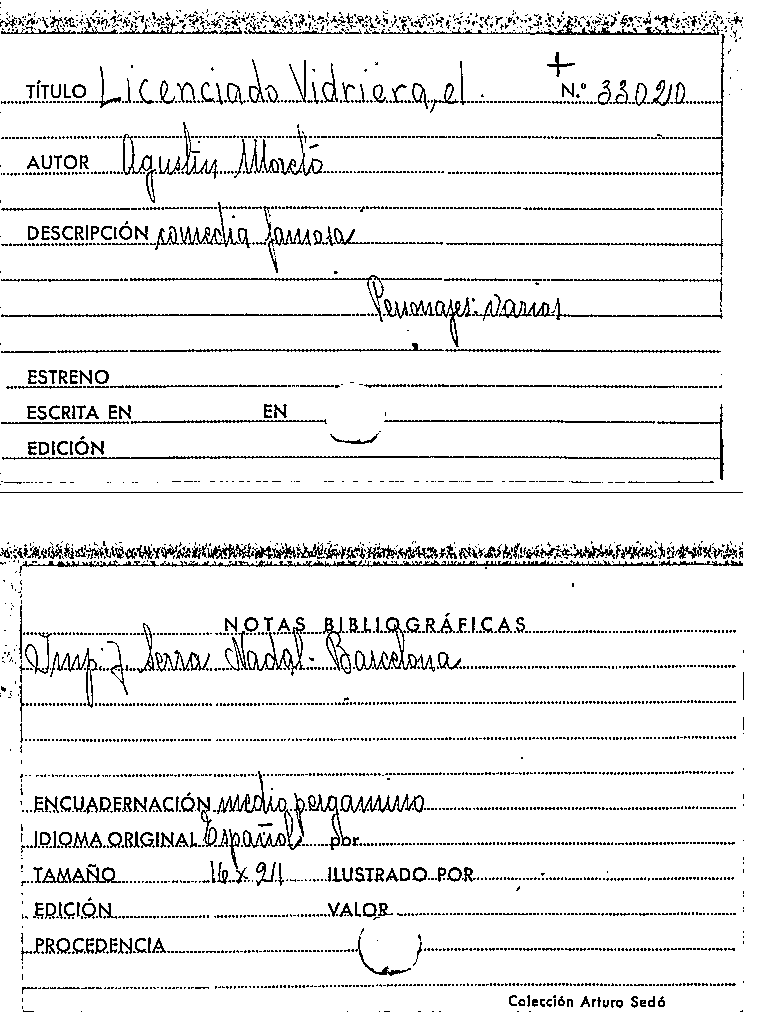 +
TÍTULO Licenciado Vidriera, el. N.º 33020
AUTOR Agustín Moreto
DESCRIPCIÓN comedia famosa
Personajes: varios
ESTRENO
ESCRITA EN EN
EDICIÓN
NOTAS BIBLIOGRÁFICAS
Imp. J. Serra Nadal - Barcelona
ENCUADERNACIÓN medio pergamino
IDIOMA ORIGINAL Español por
TAMAÑO 16 x 21 ILUSTRADO POR
EDICIÓN VALOR
PROCEDENCIA
Colección Arturo Sedó